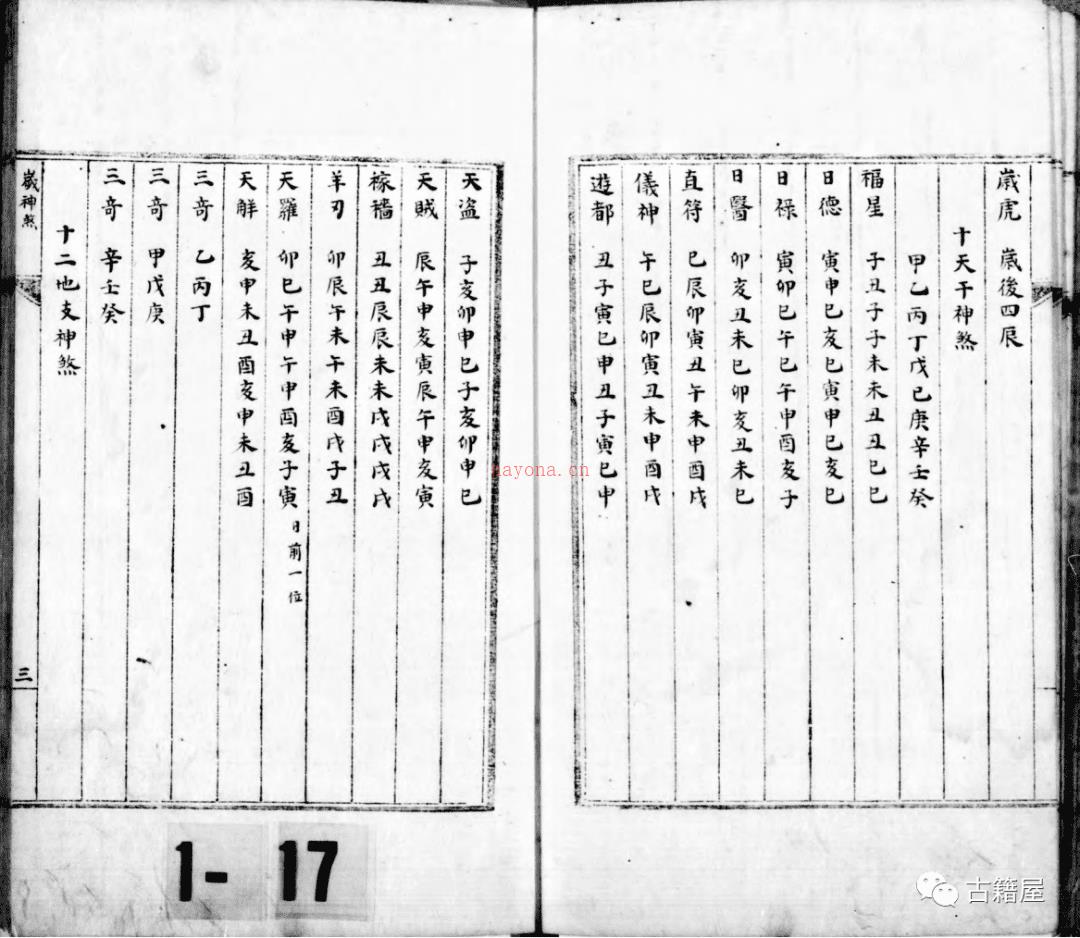 歲虎 歲後四辰
十天干神煞
甲乙丙丁戊己庚辛壬癸
福星 子丑子子未未丑丑巳巳
日德 寅申巳亥巳寅申巳亥巳
日祿 寅卯巳午巳午申酉亥子
日醫 卯亥丑未巳卯亥丑未巳
直符 巳辰卯寅丑午未申酉戌
儀神 午巳辰卯寅丑未申酉戌
遊都 丑子寅巳申丑子寅巳申
天盜 子亥卯申巳子亥卯申巳
天賊 辰午申亥寅辰午申亥寅
稼穡 丑丑辰辰未未戌戌戌戌
羊刃 卯辰午未午未酉戌子丑
天羅 卯巳午申午申酉亥子寅 日前一位
天解 亥申未丑酉亥申未丑酉
三奇 乙丙丁
三奇 甲戊庚
三奇 辛壬癸
十二地支神煞
歲神煞
三
nayona.cn
1- 17
古籍屋